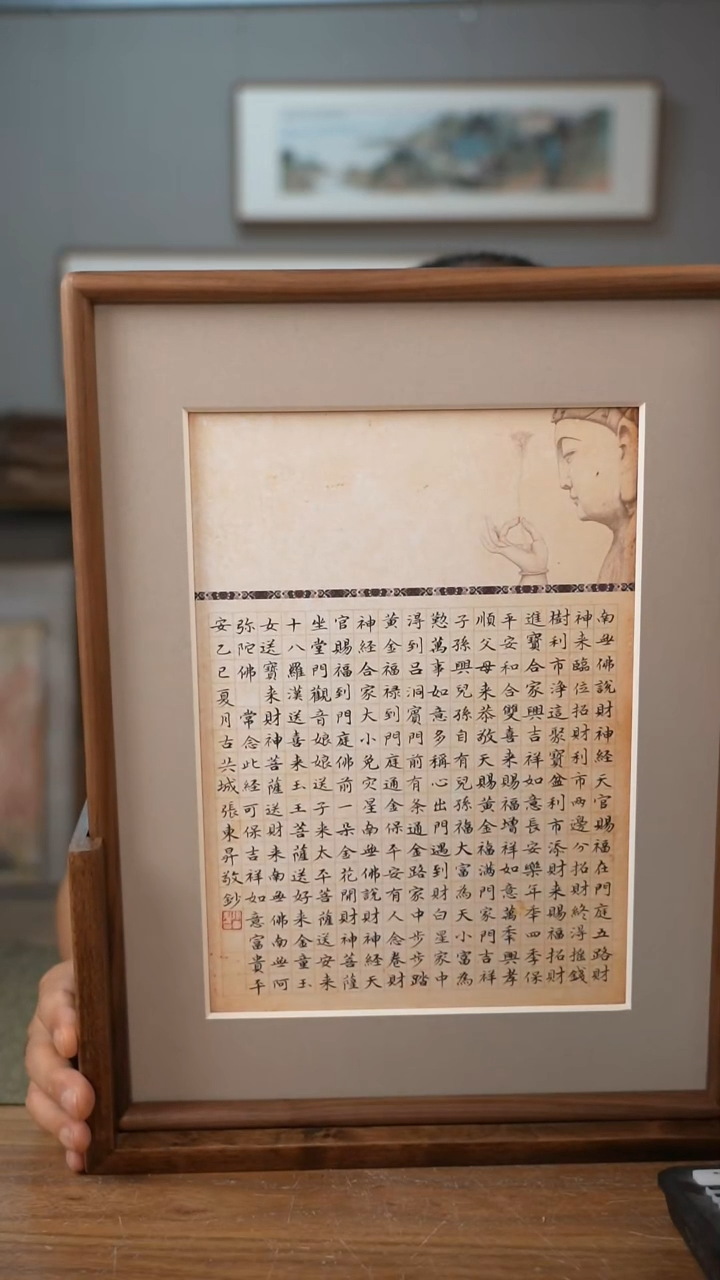 南無佛說財神經天官賜福在門庭五路財
神来臨位招財利市兩邊分招財終淂推錢
樹利市淨這聚寶盆利市添財来賜福招財
進寶合家興吉祥如意長安樂年季四季保
平安和合雙喜来賜福增祥如意萬季興孝
順父母来恭敬有天賜黄金福滿門家門吉祥
子孫興兒孫自有兒孫福大富為天小富為
懃萬事如意多稱心出門遇到財白星家中
淂到呂洞賓門前有条通金路家中步步踏
黄金福禄到門庭通金保平安有人念卷財
神經合家大小免灾星南無佛說財神經天
官賜福到門庭佛前一朵金花開財神菩薩
坐堂門觀音娘娘送子来太平菩薩送安来
十八羅漢送喜来玉王菩薩送好来金童玉
女送寶来財神菩薩送財来南無佛南無阿
弥陀佛 常念此經可保吉祥如意富貴平
安乙巳夏月古共城張東昇敬鈔